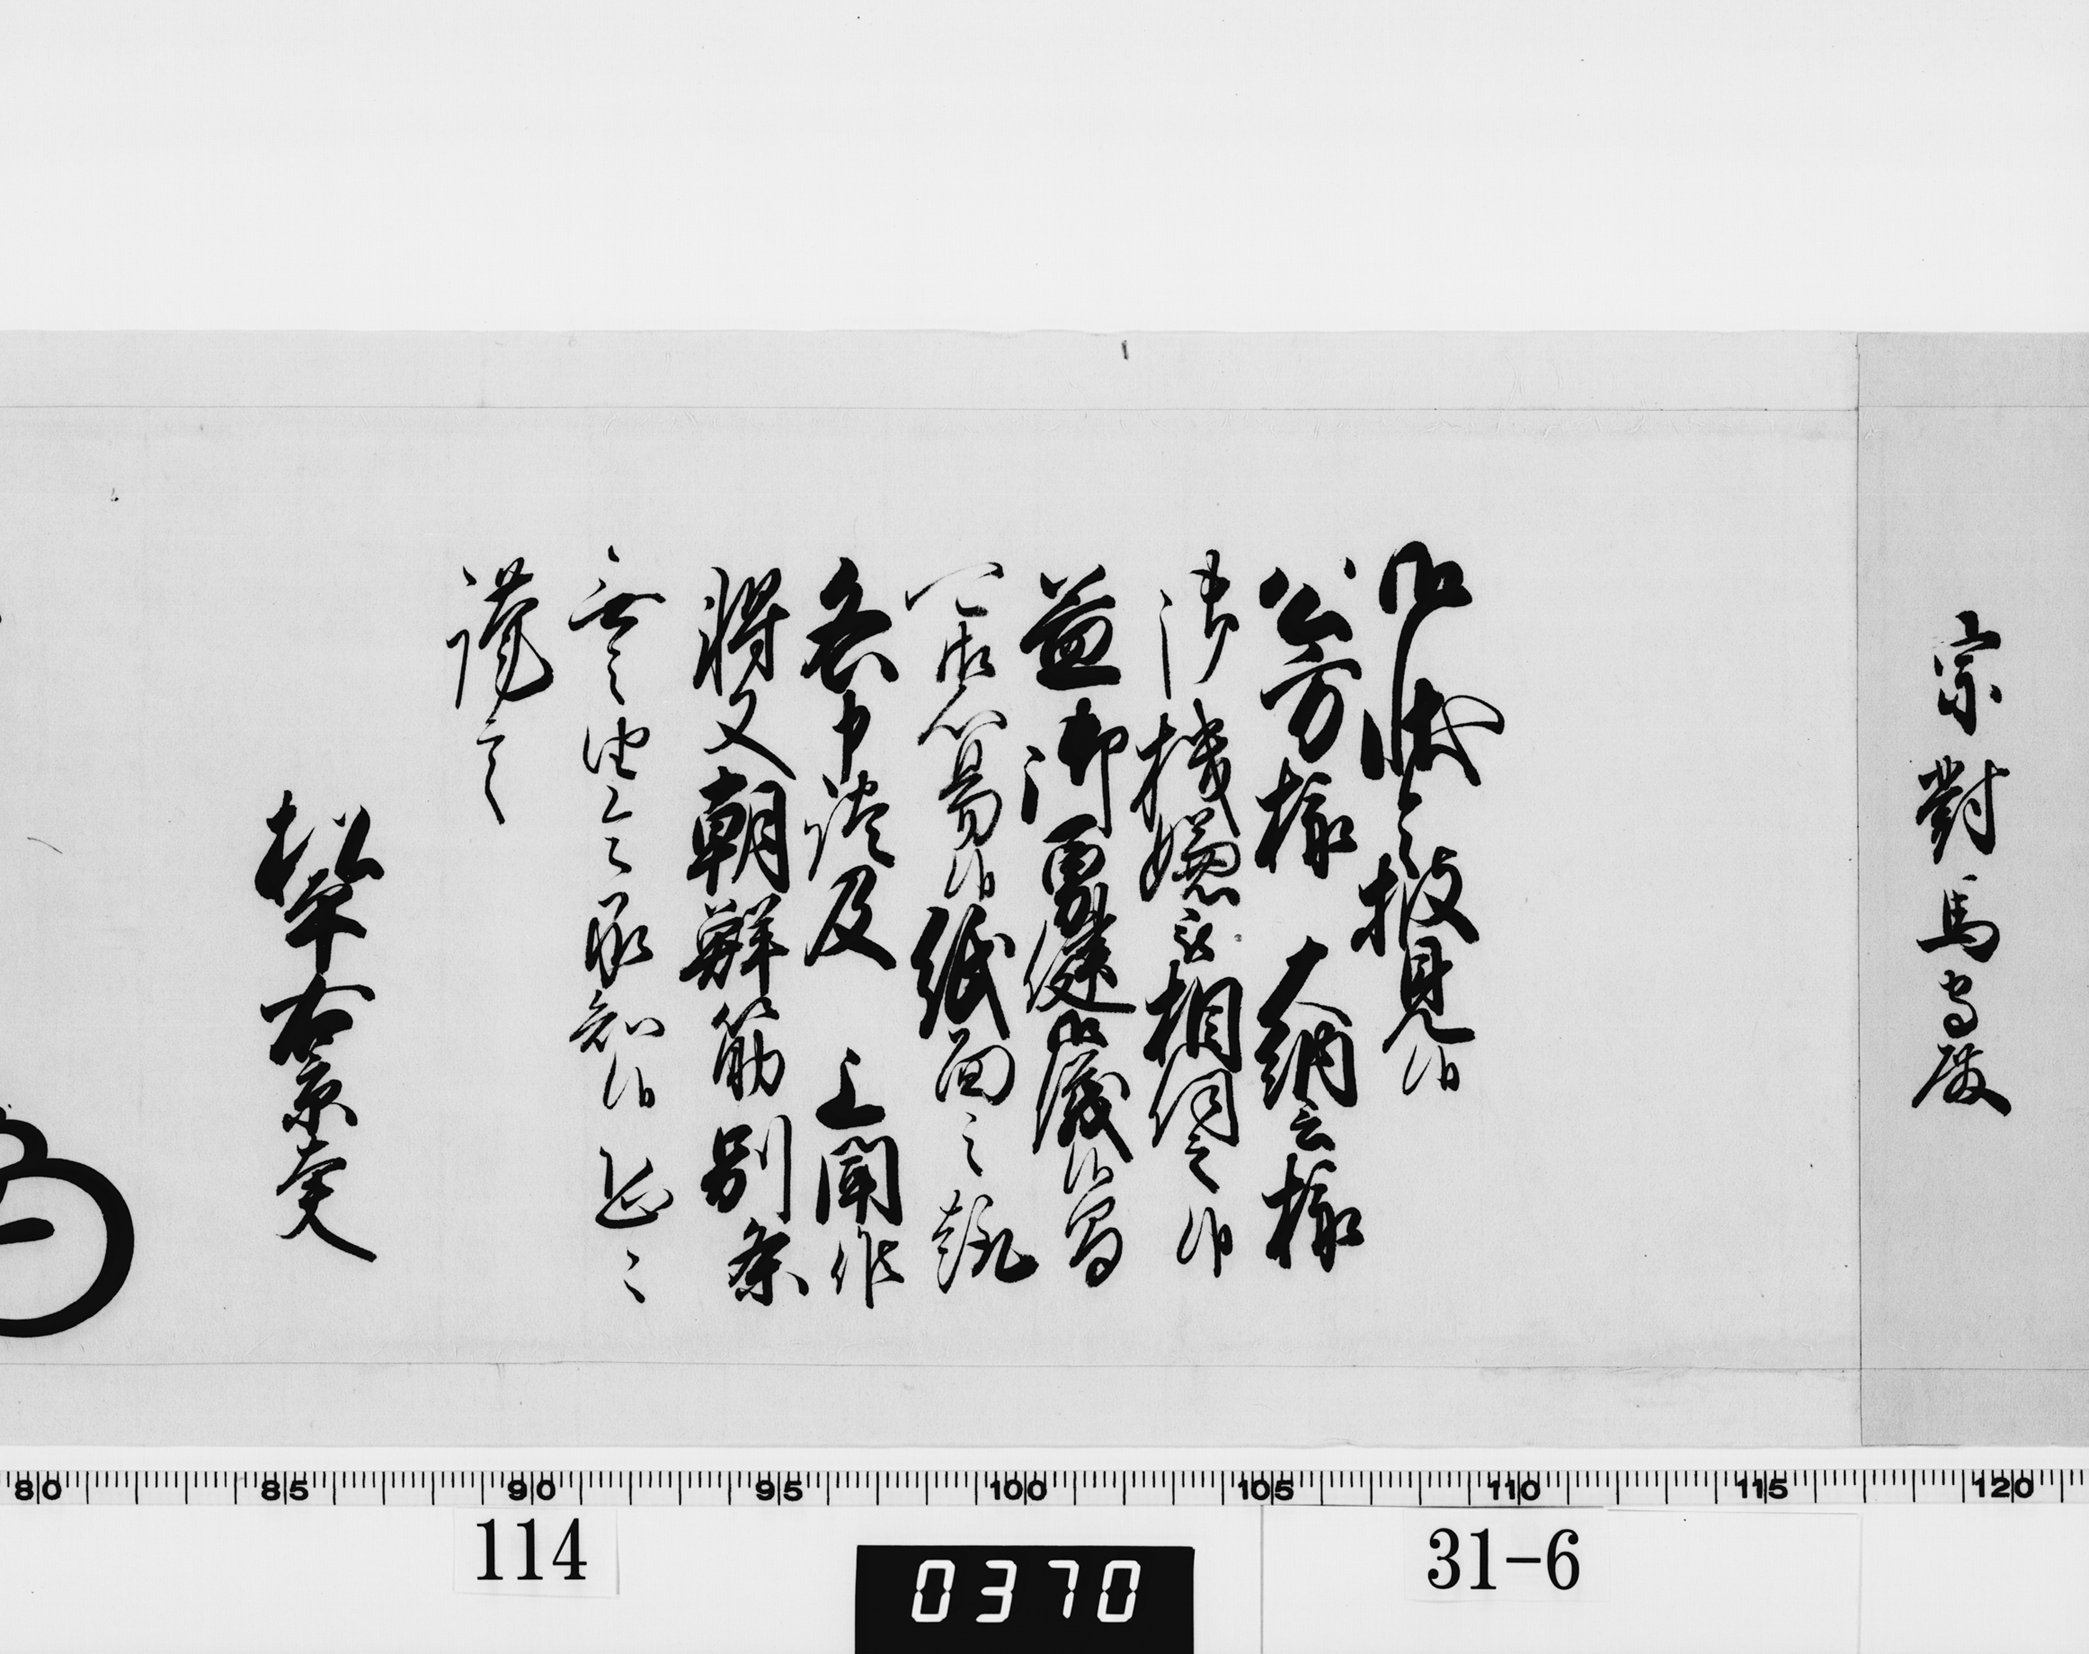 宗對馬守殿
御状令披見候
公方様 大納言様
御機嫌被相伺之候
益御勇健御儀候間
可御心易候紙面之趣
各申談及 上聞候
将又朝鮮筋別条
無之由令承知候恐々
謹言
松平右京大夫
80 85 90 95 100 105 110 115 120
114
0370
31-6